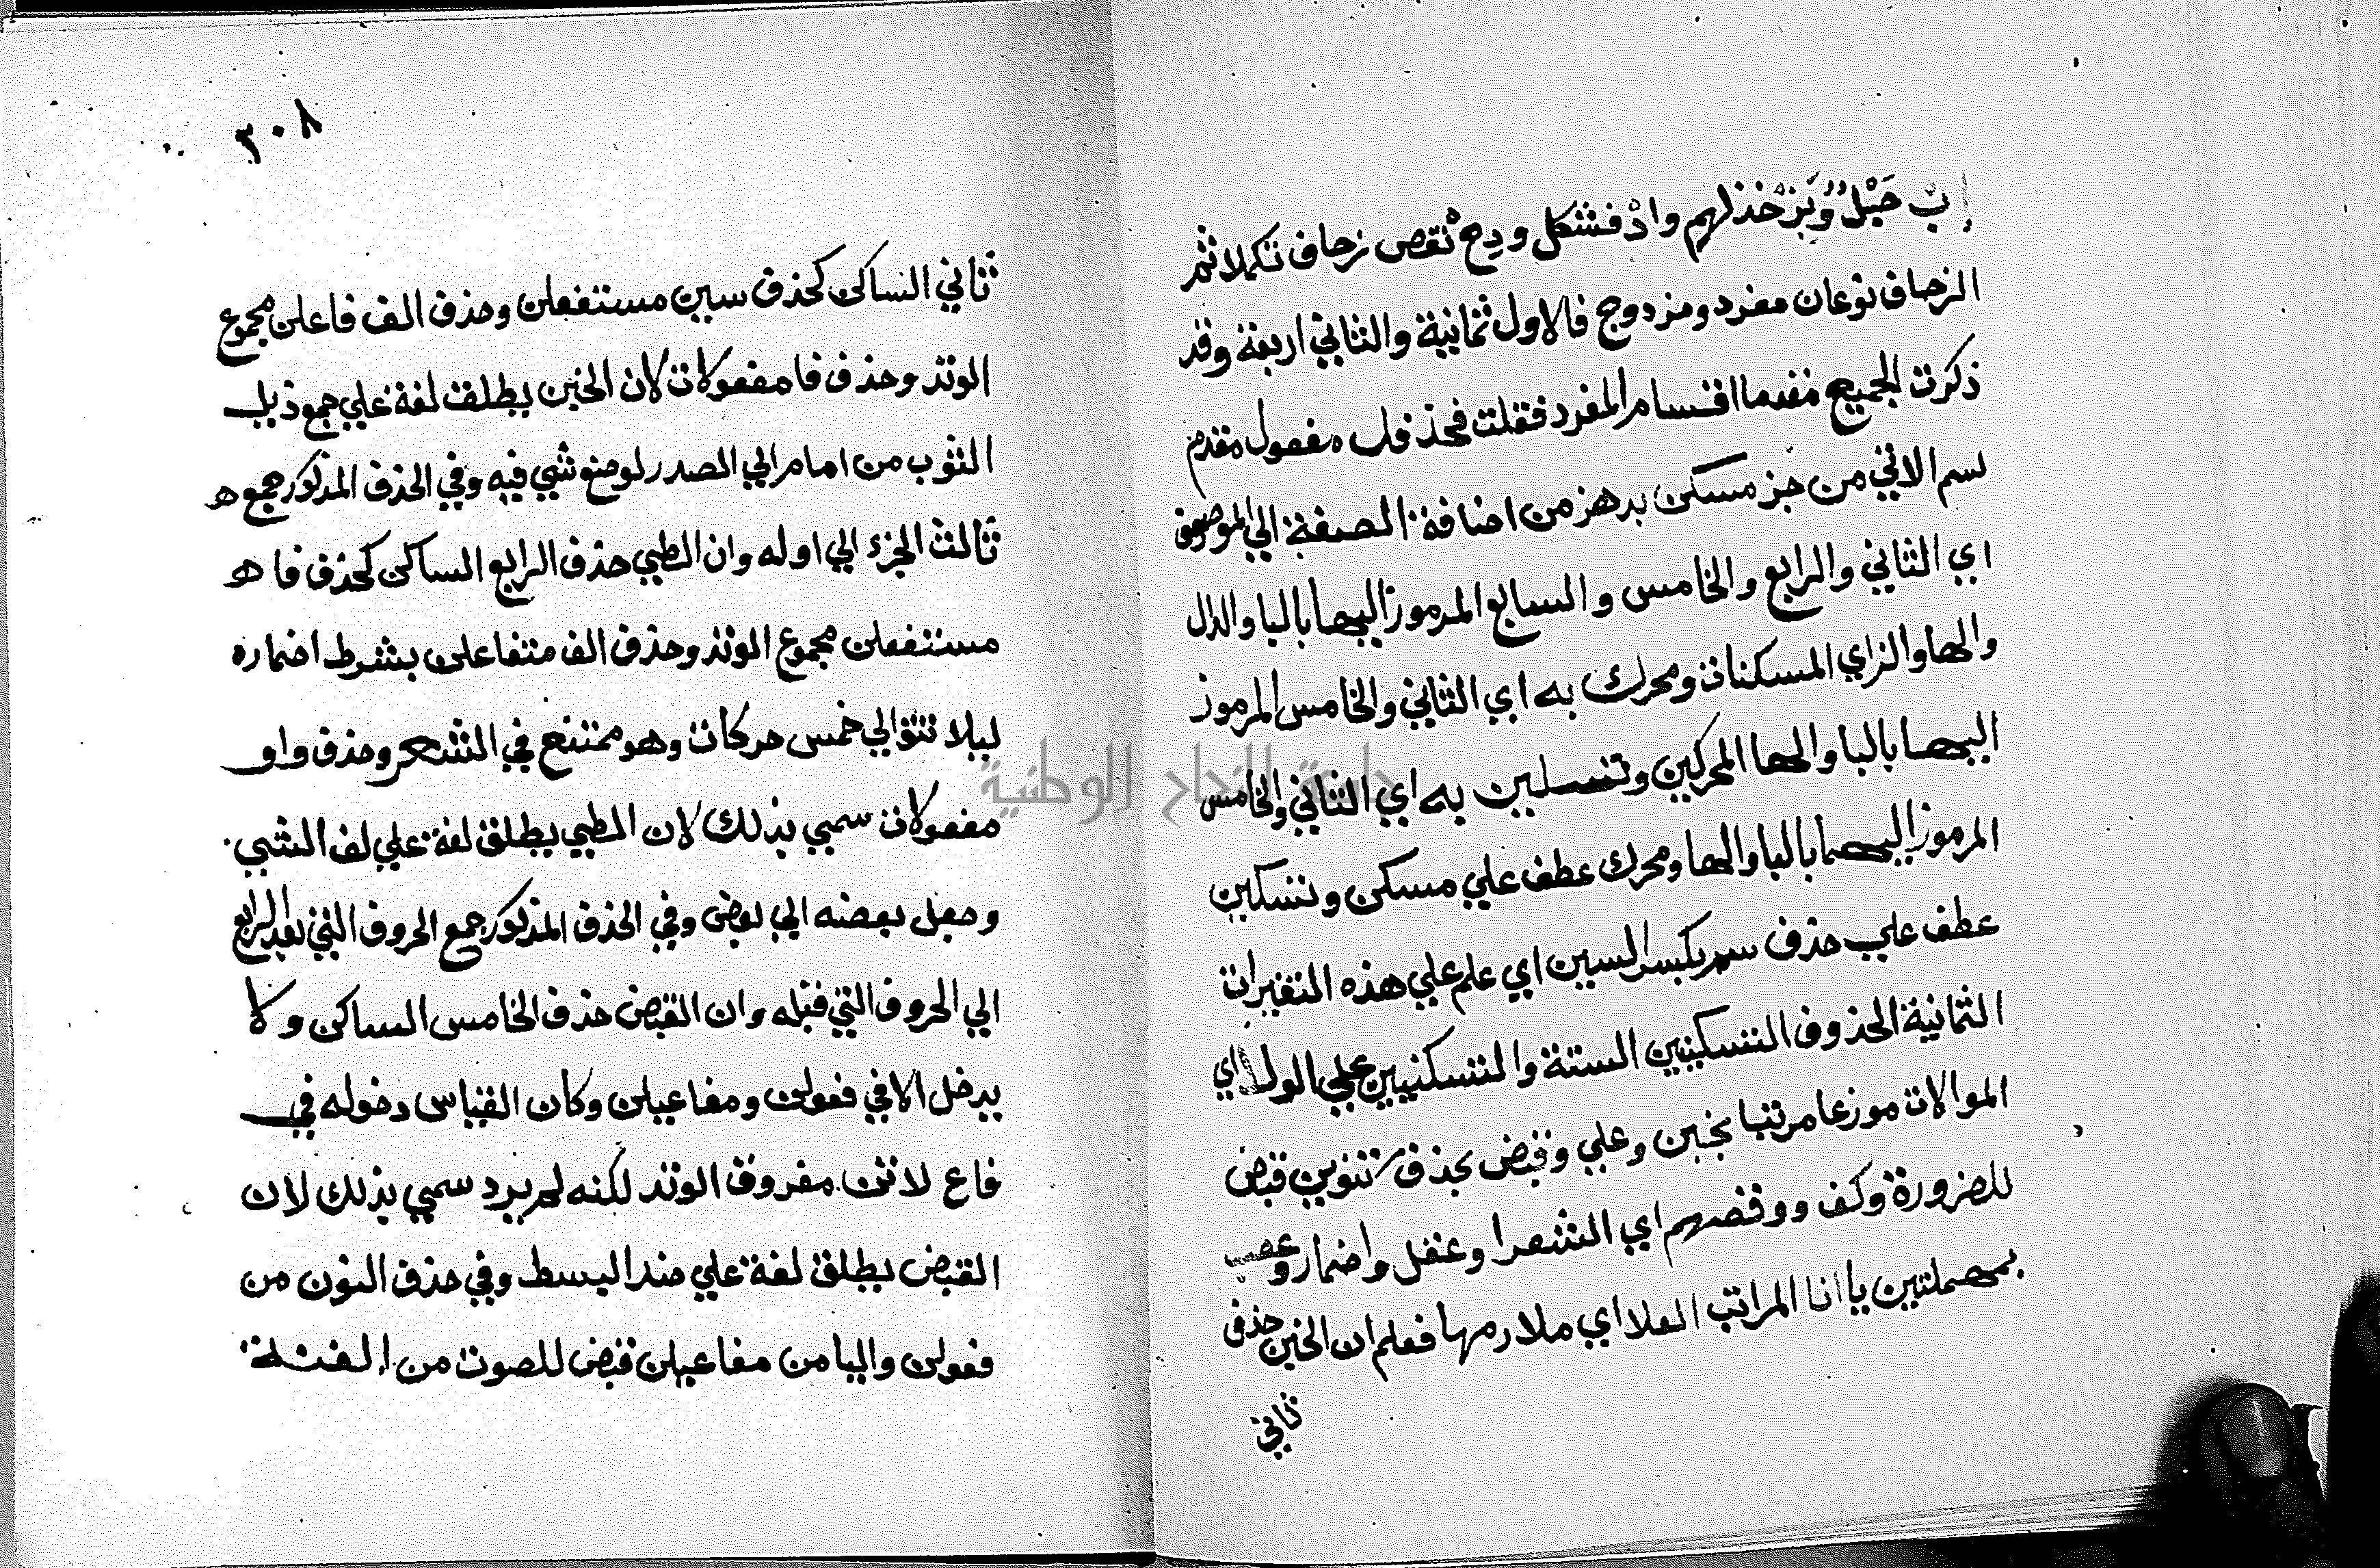 اب خَبْل وَبَزْ خذلهم واذ فشكل ودح نقص زحاف تكملا ثم
الزحاف نوعان مفرد ومزدوج فالاول ثمانية والثاني اربعة وقد
ذكرت الجميع مقدما اقسام المفرد فقلت فحذفك مفعول مقدم
لسم الاتي من جز مسكن بدهز من اضافة الصفة الي الموصوف
اي الثاني والرابع والخامس والسابع المرموز اليها بالبا والدال
والها والزاي المسكنات ومحرك به اي الثاني والخامس المرموز
اليها بالبا والها المحركين وتسكين به اي الثاني والخامس
المرموز اليها بالبا والها ومحرك عطف علي مسكن وتسكين
عطف علي حذف سم بكسر السين اي علم علي هذه التغيرات
الثمانية الحذوف الستة والتسكينين علي الولا اي
الموالات موزعا مرتبا بخبن وعلي وقبض بحذف تنوين قبض
للضرورة وكف ووقصهم اي الشعرا وعقل واضمار وعصب
بمهملتين يا انا المراتب العلا اي ملازمها فعلم ان الخبن حذف
ثاني
٣٠٨
ثاني الساكن كحذف سين مستفعلن وحذف الف فاعلن مجموع
الوتد وحذف فا مفعولات لان الخبن يطلق لغة علي جمع ذيل
الثوب من امام الي الصدر لوضع شي فيه وفي الحذف المذكور جمع ه
ثالث الجزء الي اوله وان الطي حذف الرابع الساكن كحذف فا ه
مستفعلن مجموع الوتد وحذف الف متفاعلن بشرط اضماره
ليلا تتوالي خمس حركات وهو ممتنع في الشعر وحذف واو
مفعولات سمي بذلك لان الطي يطلق لغة علي لف الشي
وجعل بعضه الي بعض وفي الحذف المذكور جمع الحروف التي بعد الرابع
الي الحروف التي قبله وان القبض حذف الخامس الساكن ولا
يدخل الا في فعولن ومفاعيلن وكان القياس دخوله في
فاع لاتن مفروق الوتد لكنه لم يرد سمي بذلك لان
القبض يطلق لغة علي ضد البسط وفي حذف النون من
فعولن واليا من مفاعيلن قبض للصوت من الغنة
جامعة النجاح الوطنية